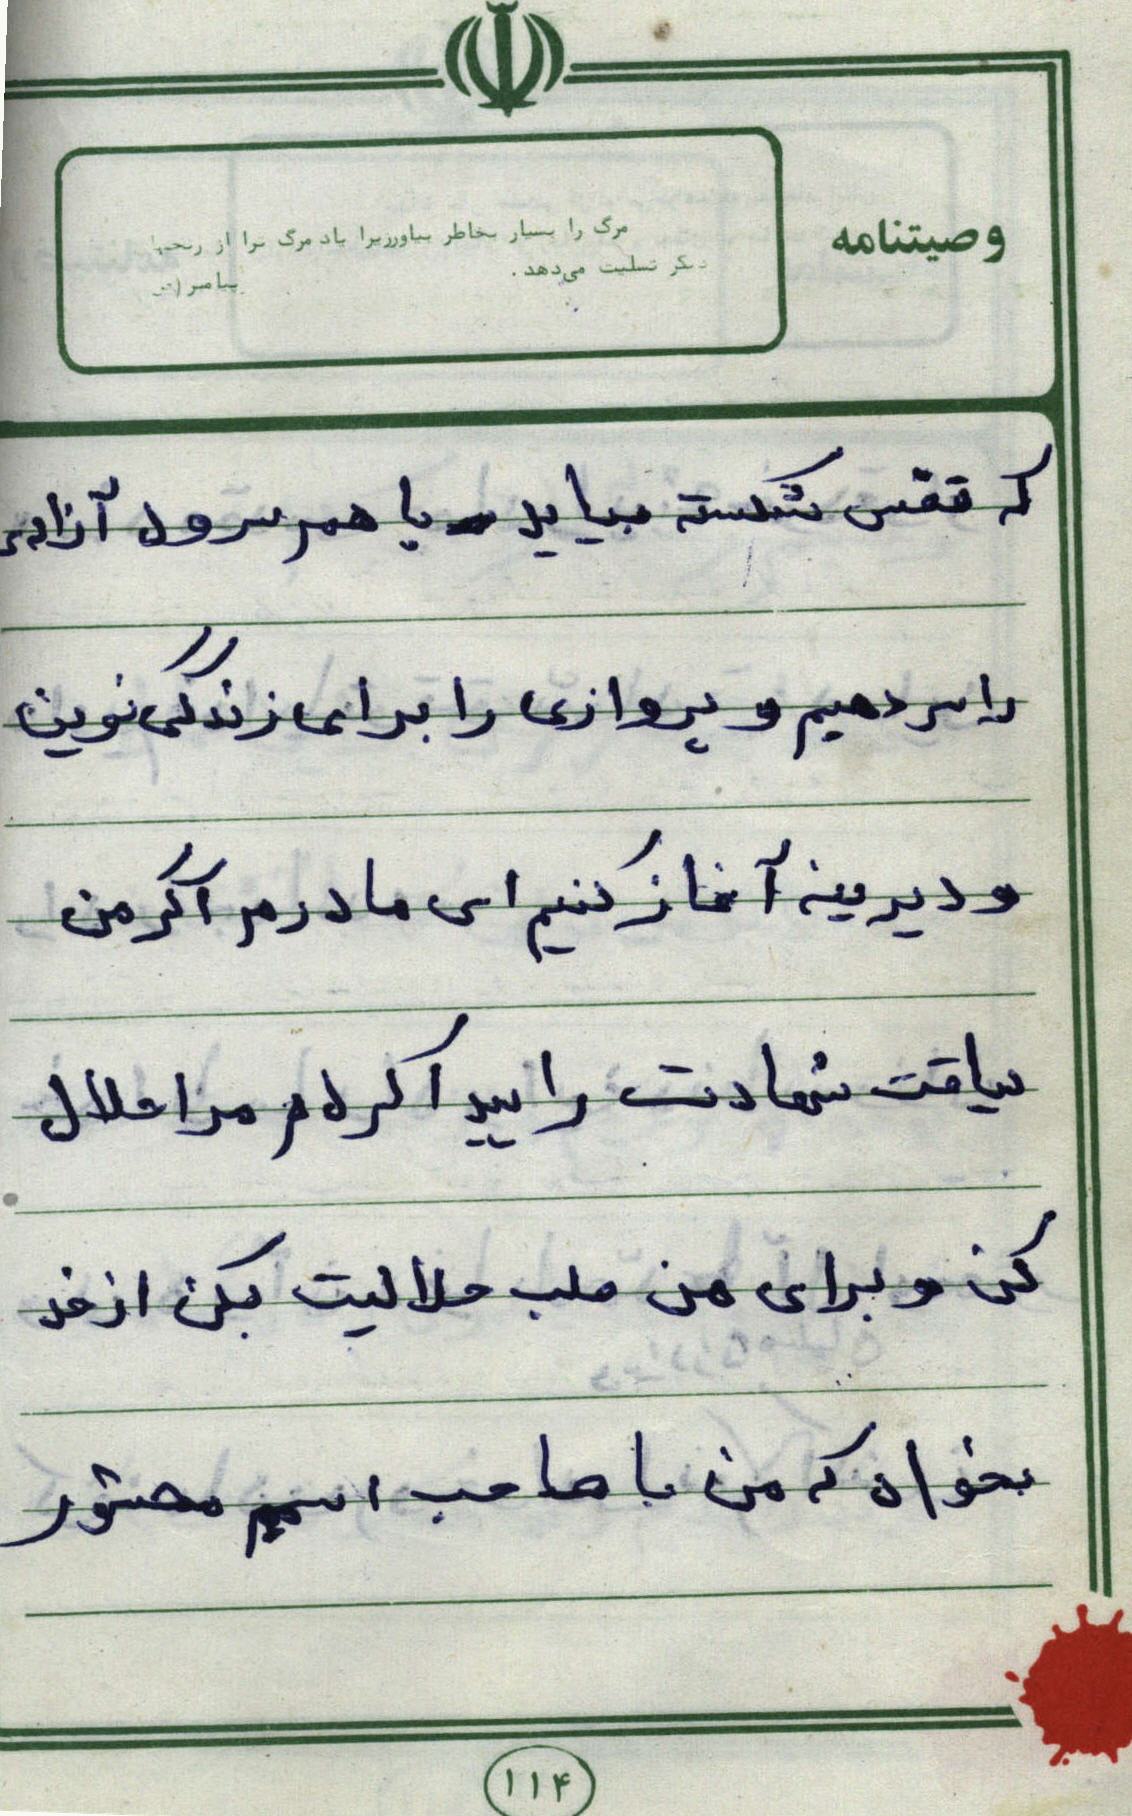 وصیتنامه
مرگ را بسیار بخاطر بیاورزیرا یاد مرگ ترا از رنجهای
دیگر تسلیت می‌دهد.
پیامبر (ص)
که قفس شکسته بیاید با هم سرود آزادی
را سر دهیم و پروازی را برای زندگی نوین
و دیرینه آغاز کنیم ای مادرم اگر من
لیاقت شهادت را پیدا کردم مرا حلال
کن و برای من طلب حلالیت بکن از خد
بخواه که من با صاحب اسمم محشور
۱۱۴